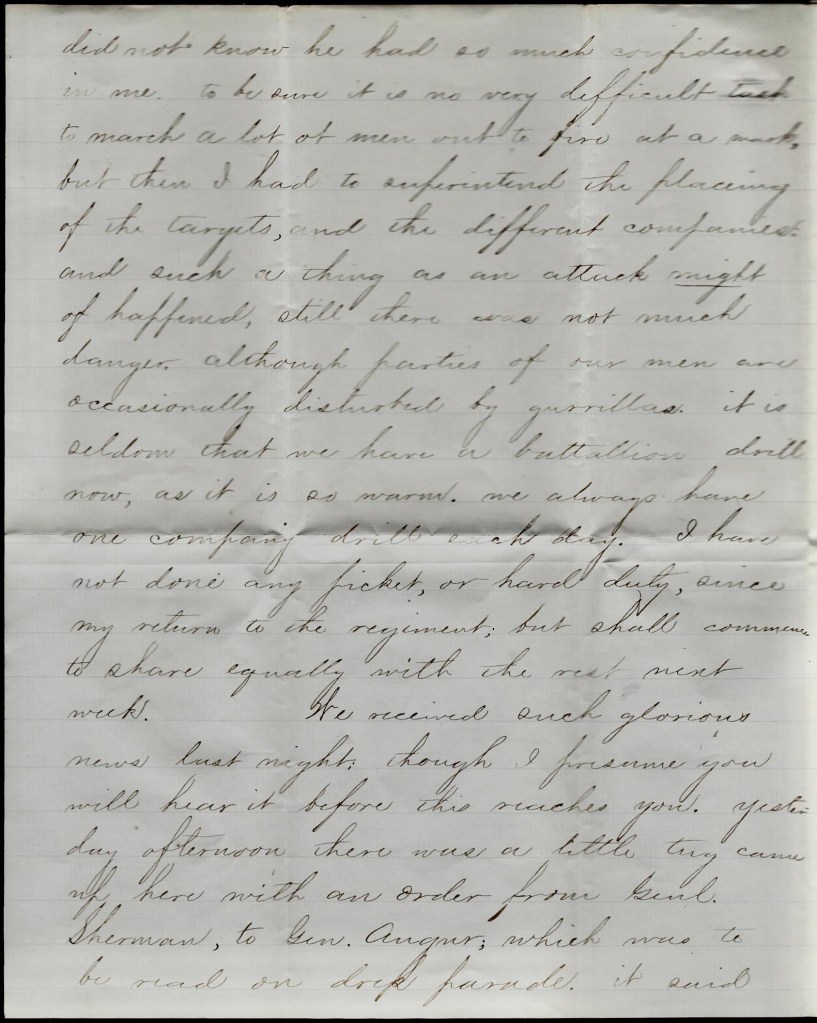 did not know he had so much confidence
in me. to be sure it is no very defficult task
to march a lot of men out to fire at a mark,
but then I had to superintend the placing
of the targets, and the different companies.
and such a thing as an attack might
of happened, still there was not much
danger. although parties of our men are
occasionally disturbed by gurrillas. it is
seldom that we have a battallion drill
now, as it is so warm. we always have
one company drill each day. I have
not done any picket, or hard duty, since
my return to the regiment; but shall commence
to share equally with the rest next
week. We received such glorious
news last night; though I presume you
will hear it before this reaches you. yester-
day afternoon there was a little tug came
up here with an order from Genl.
Sherman, to Gen. Augur; which was to
be read on dress parade. it said